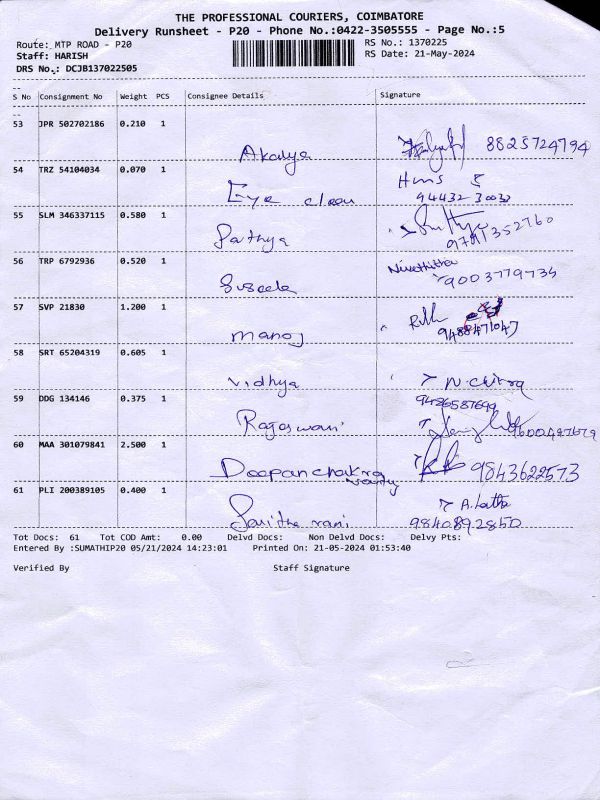 THE PROFESSIONAL COURIERS, COIMBATORE
Delivery Runsheet - P20 - Phone No.:0422-3505555 - Page No.:5
Route: MTP ROAD - P20 RS No.: 1370225
Staff: HARISH RS Date: 21-May-2024
DRS No.: DCJB137022505
S No Consignment No Weight PCS Consignee Details Signature
53 JPR 502702186 0.210 1
Akalya 8825724794
54 TRZ 54104034 0.070 1 Hms
Eye clean 94432 30030
55 SLM 346337115 0.580 1
Sathya 9791352760
56 TRP 6792936 0.520 1 Nivethitha
Suseela 9003779735
57 SVP 21830 1.200 1
manoj 9488471047
58 SRT 65204319 0.605 1
Vidhya N. Chitra
59 DDG 134146 0.375 1 9486587699
Rajeswari 9600497679
60 MAA 301079841 2.500 1
Deepan chakra 9843622573
varty
61 PLI 200389105 0.400 1 A. Latha
Savitha rani 9840892850
Tot Docs: 61 Tot COD Amt: 0.00 Delvd Docs: Non Delvd Docs: Delvy Pts:
Entered By :SUMATHIP20 05/21/2024 14:23:01 Printed On: 21-05-2024 01:53:40
Verified By Staff Signature